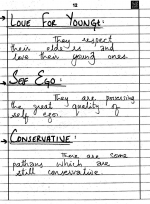 12
LOVE FOR YOUNGS:
They respect
their olds is and
love their young ones.
SELF EGO:
They are possessing
the great quality of
self ego.
CONSERVATIVE:
There are some
pathans which are
still conservative.